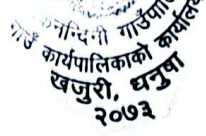 नन्दिनी गाउँपा
गाउँ कार्यपालिकाको कार्यालय
खजुरी, धनुषा
२०७३